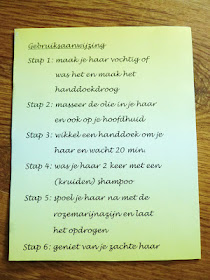 Gebruiksaanwijzing
Stap 1: maak je haar vochtig of
was het en maak het
handdoekdroog
Stap 2: masseer de olie in je haar
en ook op je hoofdhuid
Stap 3: wikkel een handdoek om je
haar en wacht 20 min.
Stap 4: was je haar 2 keer met een
(kruiden) shampoo
Stap 5: spoel je haar na met de
rozemarijnazijn en laat
het opdrogen
Stap 6: geniet van je zachte haar